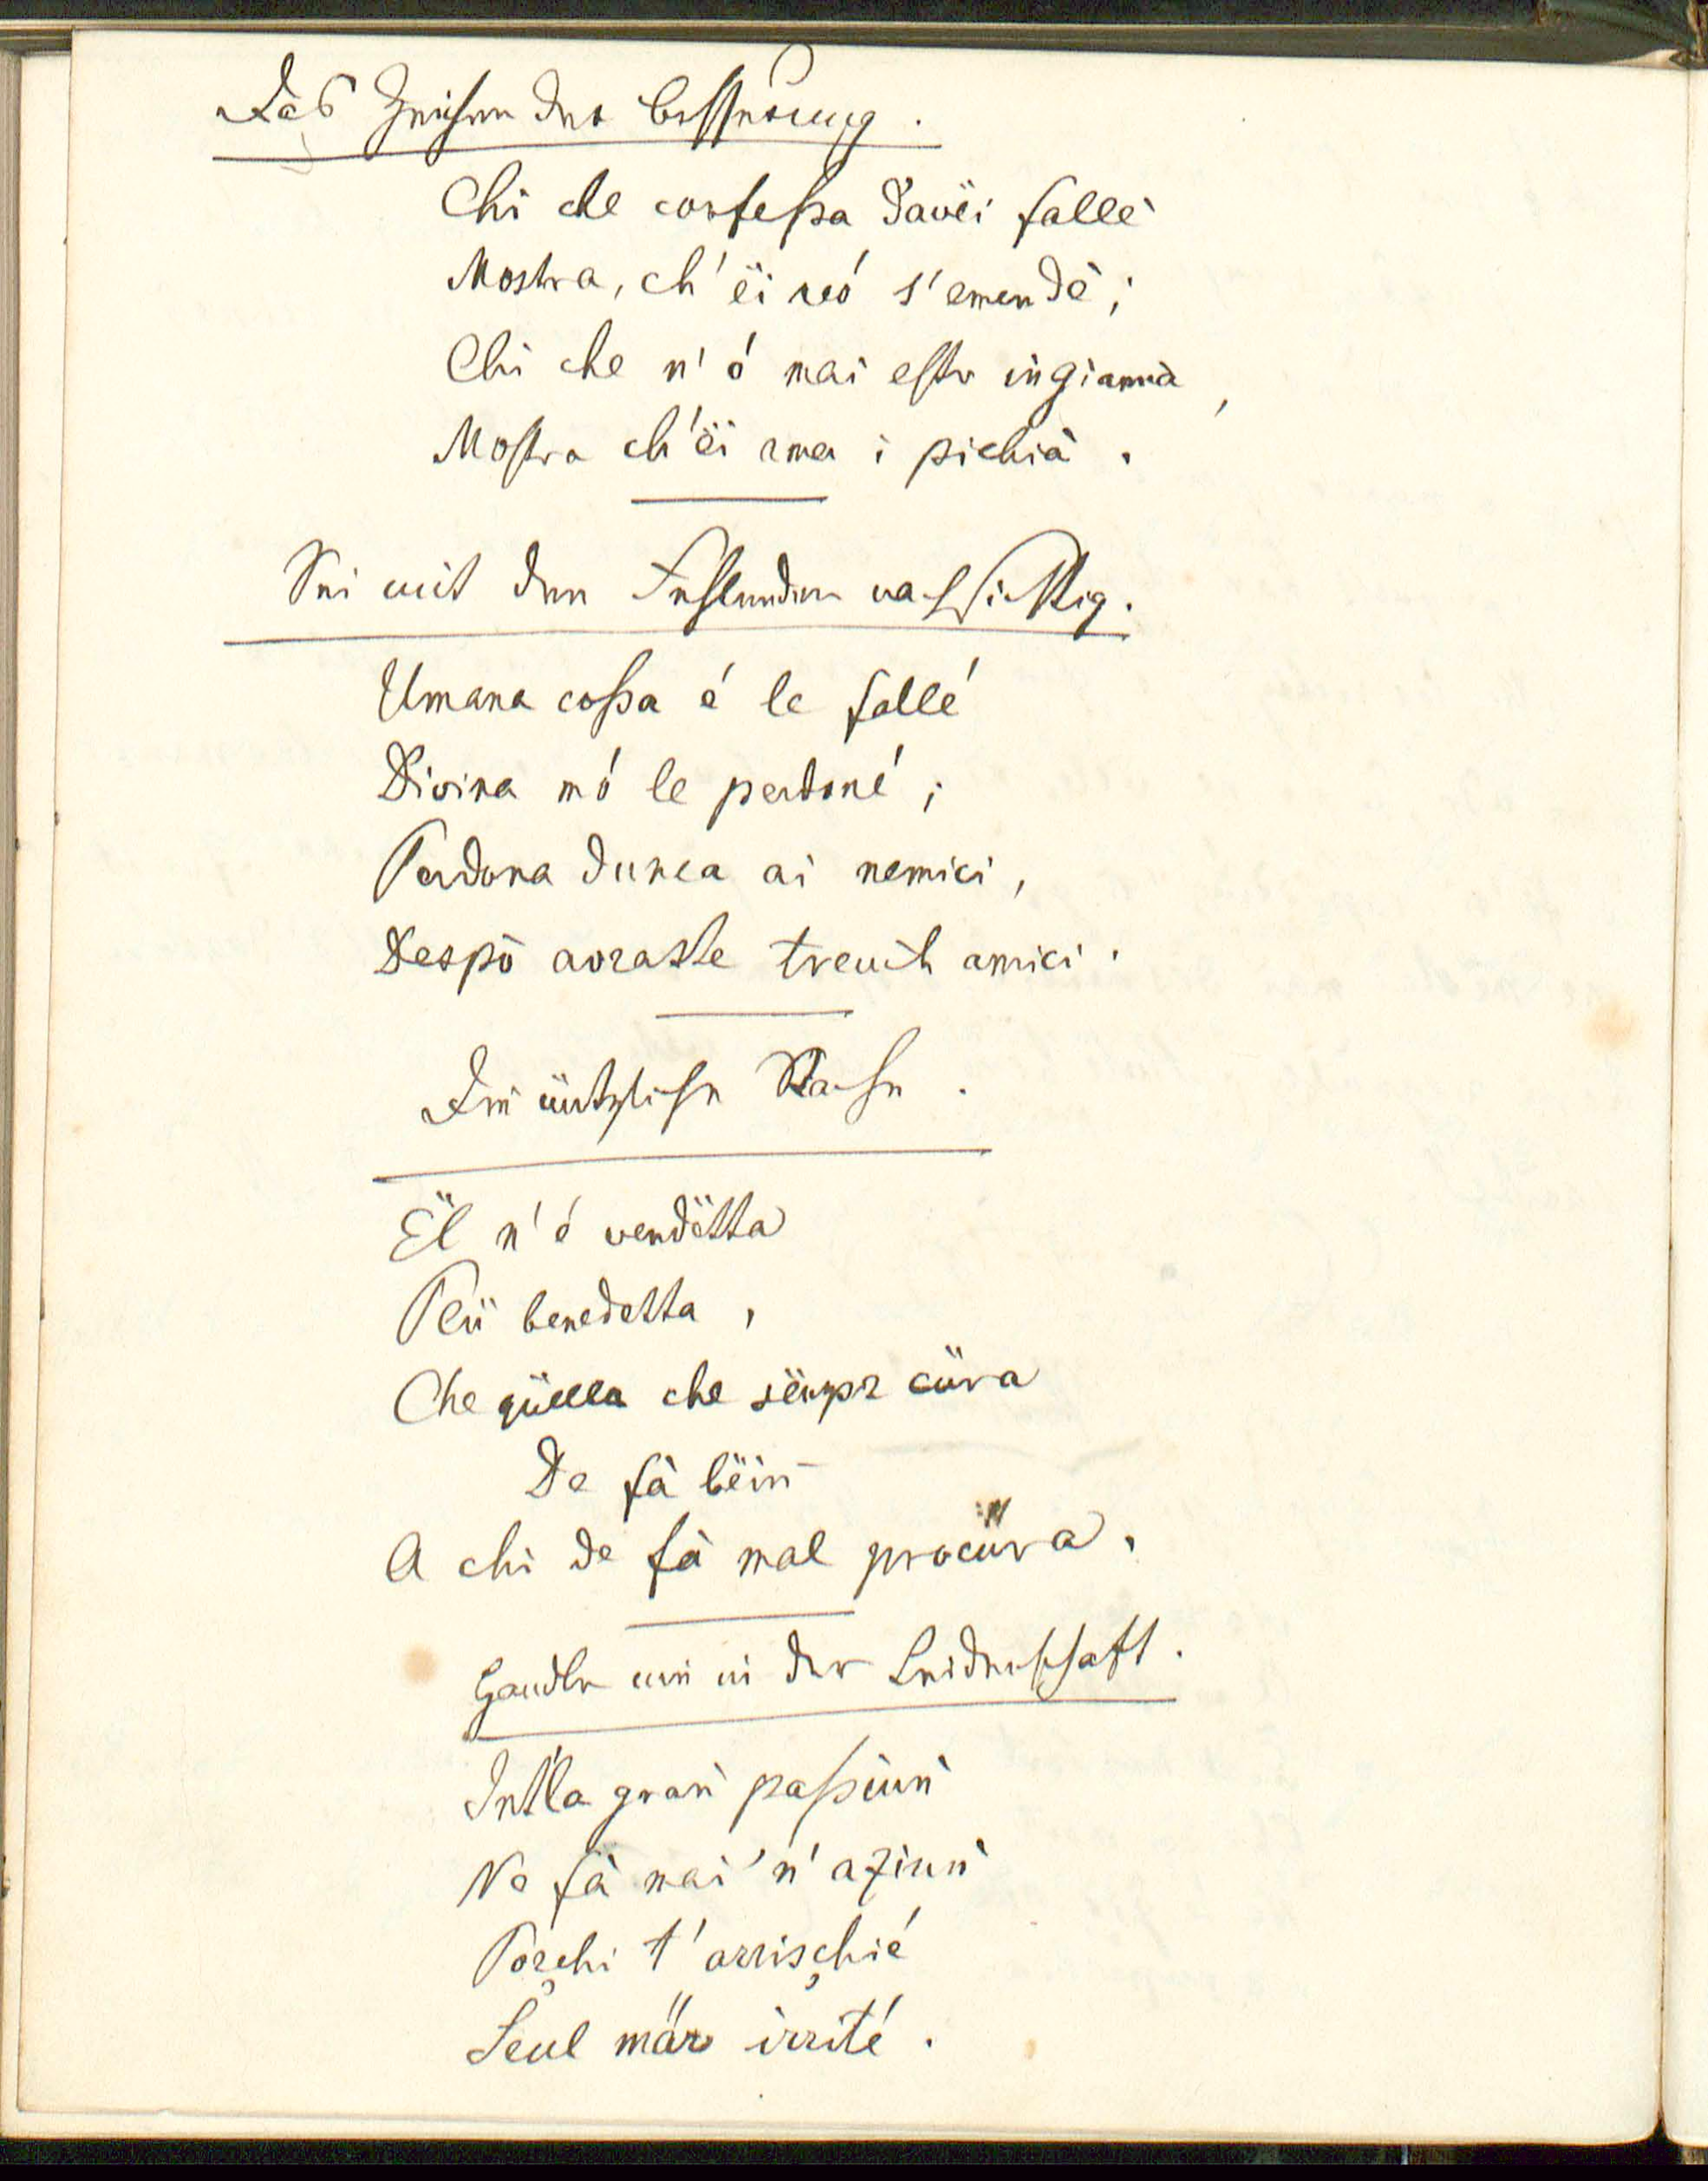 Das Zeichen der Besserung.
Chi che confeßa d'avëi fallè
Mostra, ch'ëi veó s'emendè;
Chi che n'ó mai estr ingianná,
Mostra ch'ëi ama i pichiá.
Sei mit den Fehlenden nachsichtig.
Umana coßa é le fallé
Divina mó le perdoné;
Perdona dunca ai nemici,
Despò aoraste treuth amici.
Die nützliche Rache.
Ël n'é vendëtta
Plü benedetta,
Che qüella che sëmpr cüra
De fà bëin
A chi de fà mal procüra.
Handle nie in der Leidenschaft.
Int'la gran passiun
Ne fà mai 'n' aziun
Porchi t'arrischié
Seul mär irrité.